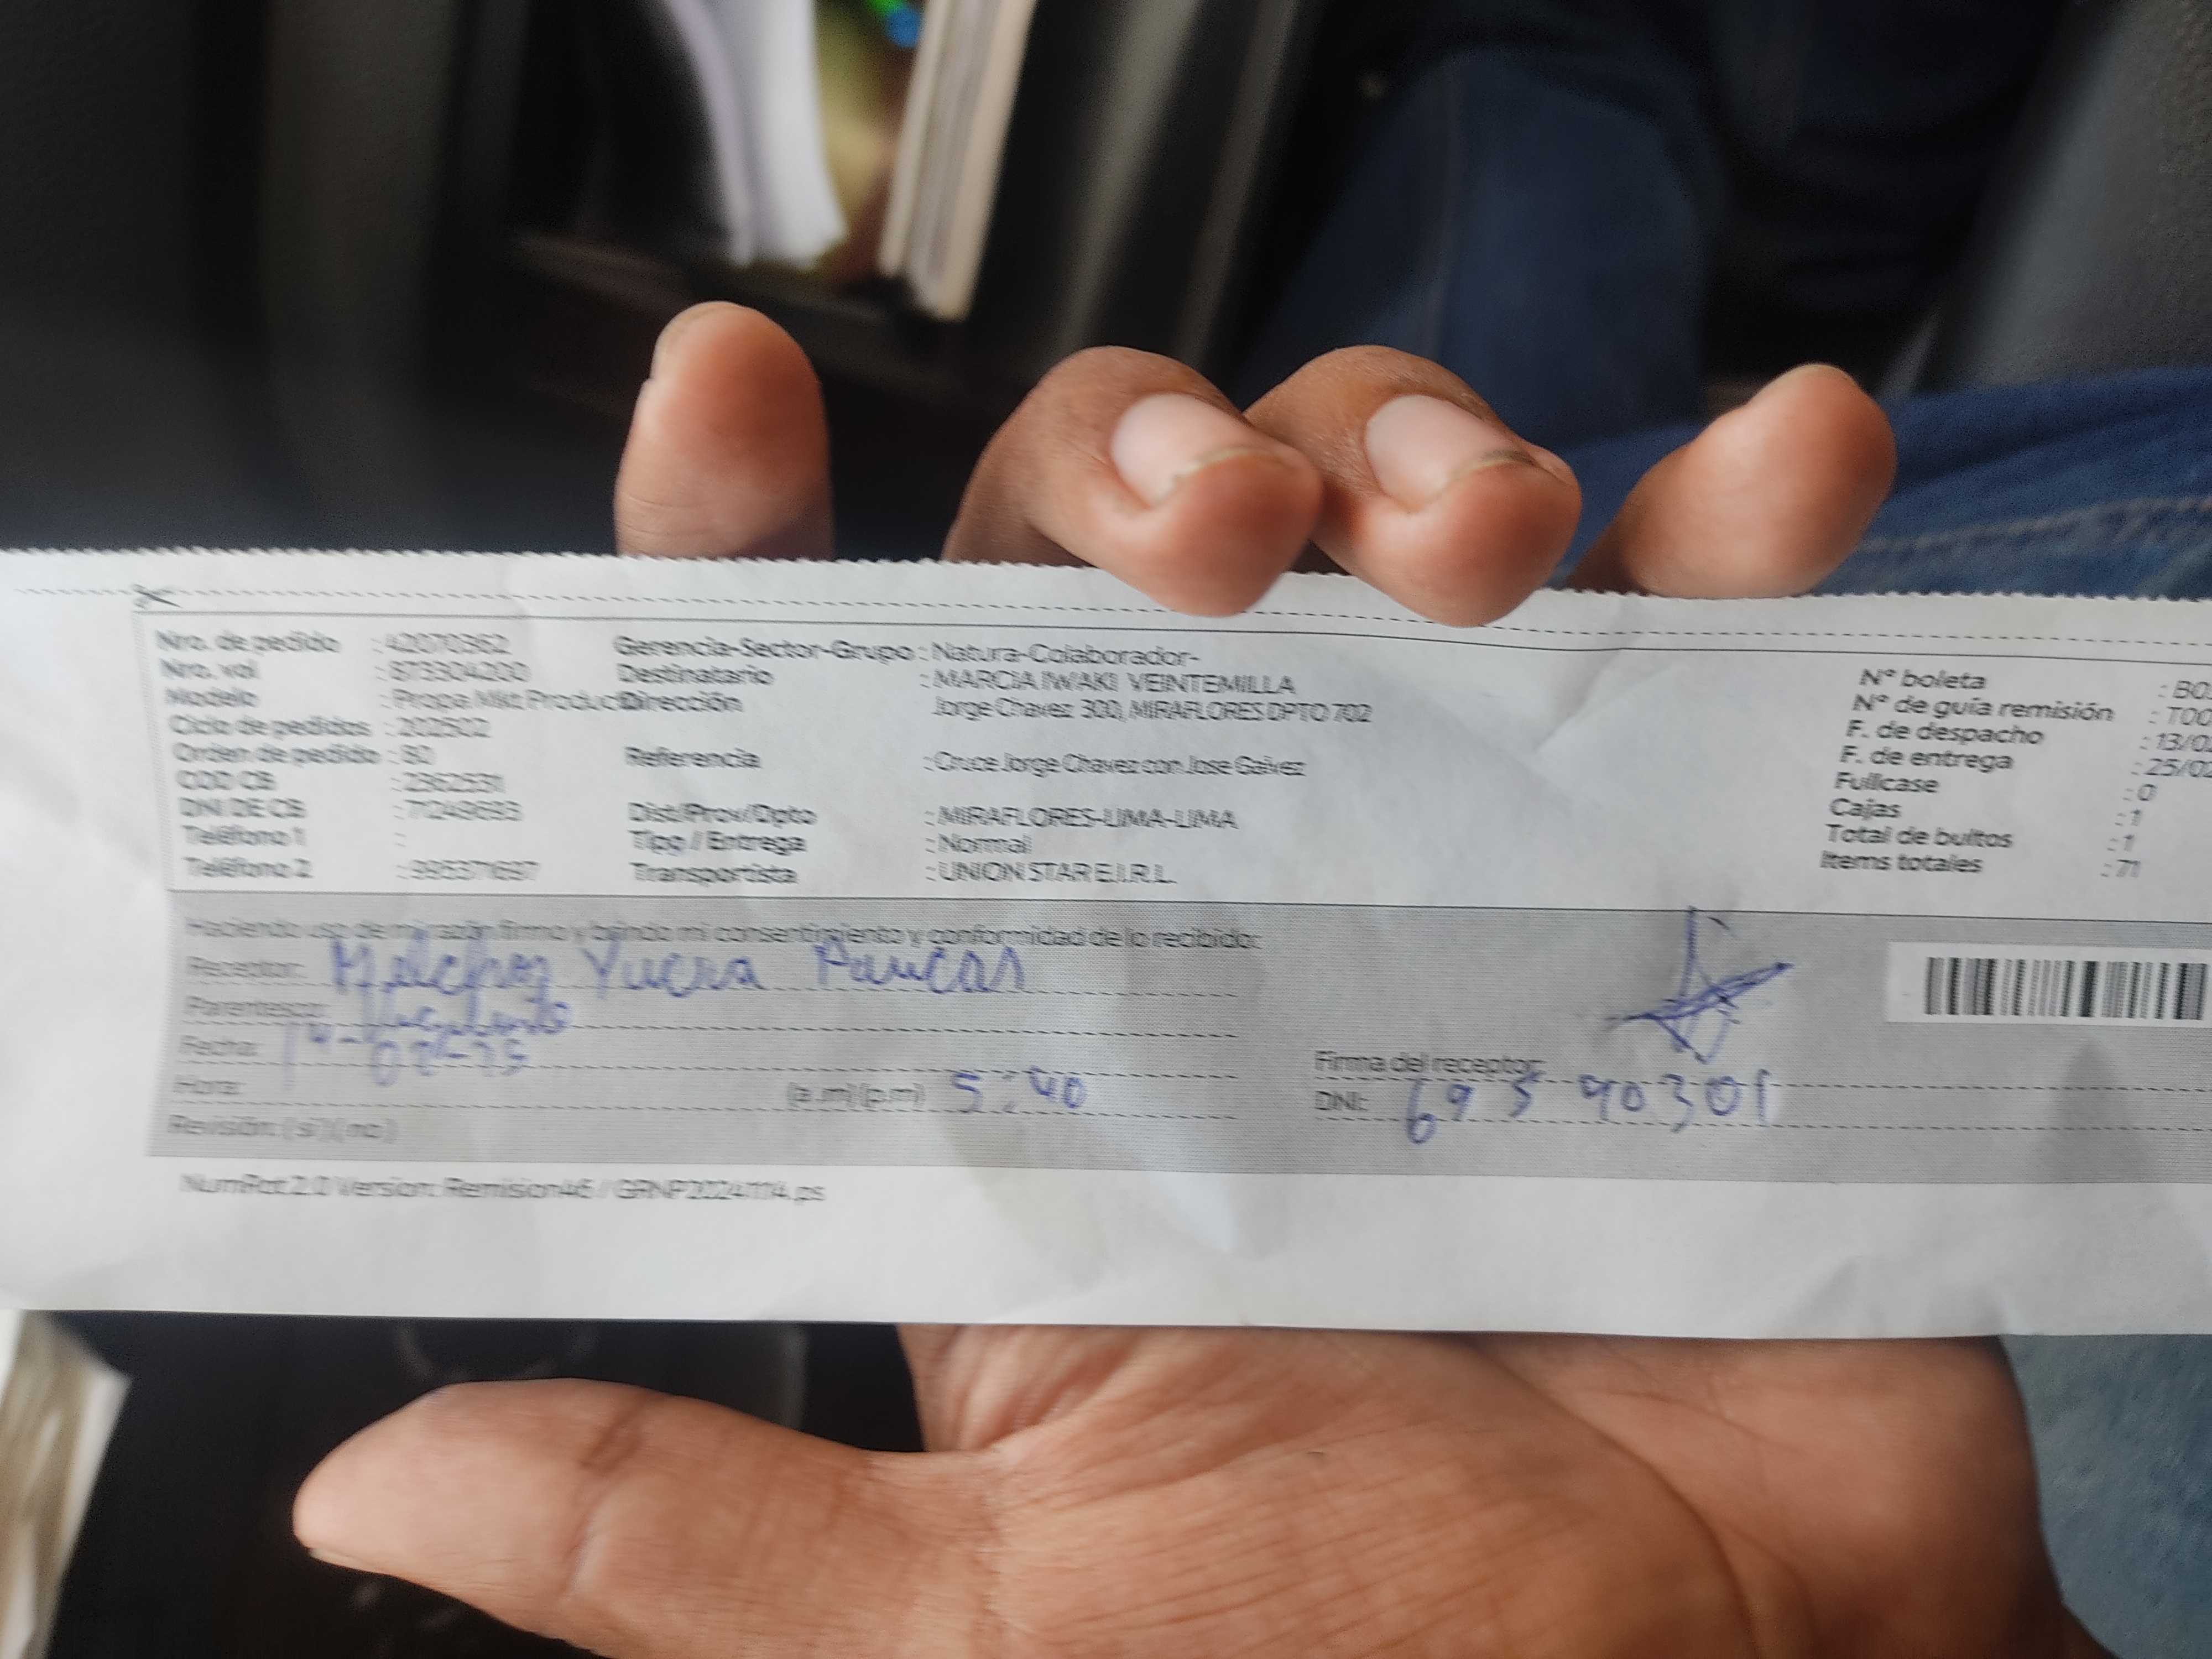 Nro. de pedido : 42070362
Nro. vol : 873304200
Modelo : Propa Mkt Produc
Ciclo de pedidos : 202502
Orden de pedido : 80
COD CB : 2362531
DNI DE CB : 71249693
Teléfono 1 :
Teléfono 2 : 995371697
Gerencia-Sector-Grupo : Natura-Colaborador-
Destinatario : MARCIA IWAKI VEINTEMILLA
Dirección Jorge Chavez 300, MIRAFLORES DPTO 702
Referencia : Cruce Jorge Chavez con Jose Galvez
Dist/Prov/Dpto : MIRAFLORES-LIMA-LIMA
Tipo / Entrega : Normal
Transportista : UNION STAR E.I.R.L.
N° boleta : B0
N° de guía remisión : T00
F. de despacho : 13/0
F. de entrega : 25/02
Fullcase : 0
Cajas : 1
Total de bultos : 1
Items totales : 71
Haciendo uso de mi razón firmo y brindo mi consentimiento y conformidad de lo recibido:
Receptor: Melchor Yucra Paucar
Parentesco:
Fecha: 14-02-
Hora: (a.m) (p.m) 5:40
Revisión: ( si ) ( no )
Firma del receptor:
DNI: 69 5 90301
NumRot 2.0 Version: Remision46 // GRNP20241114.ps